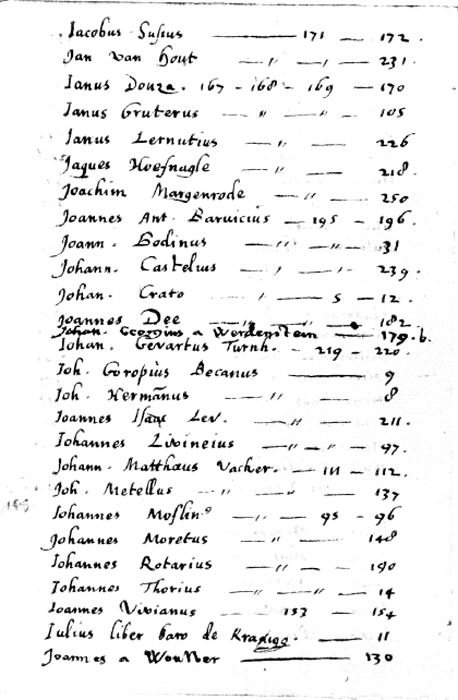 Iacobus Susius — 171 — 172.
Jan van Hout — " — " — 231.
Ianus Douza. 167 - 168 - 169 — 170
Ianus Gruterus — " — " — 105
Ianus Lernutius — " — 226
Jaques Hoefnagle — " — 218.
Joachim Margenrode — " — 250
Joannes Ant. Barvicius — 195 — 196.
Joann. Bodinus — " — " — 31
Johann. Castelius — " — 239.
Johan. Crato " — 5 — 12.
Joannes Dee — " — 182.
Johan. Georgius a Werdenstein — 179.b.
Iohan. Gevartus Turnh. - 219 - 220.
Joh. Goropius Becanus — 9
Joh. Hermānus — " — 8
Joannes Isaac Lev. — " — 211.
Iohannes Livineius — " — " — 97.
Johann. Matthæus Vacher. — 111 — 112.
Joh. Metellus — " — " — 137
Iohannes Moflin⁹ — " — 95 - 96
Johannes Moretus — " — 148
Iohannes Rotarius — " — 190
Iohannes Thorius — " — " — 14
Ioannes Vivianus — 153 — 154
Iulius liber baro de — 11
Joannes a Wouwer — 130